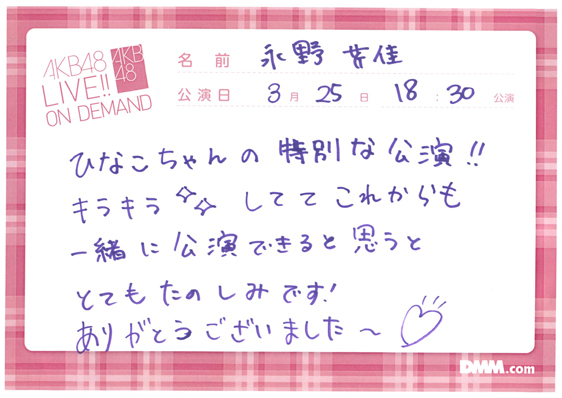 AKB48
LIVE!!
ON DEMAND
AKB
48
名前 永野 芹佳
公演日 3月25日 18:30公演
ひなこちゃんの特別な公演!!
キラキラしててこれからも
一緒に公演できると思うと
とてもたのしみです!
ありがとうございました〜
DMM.com